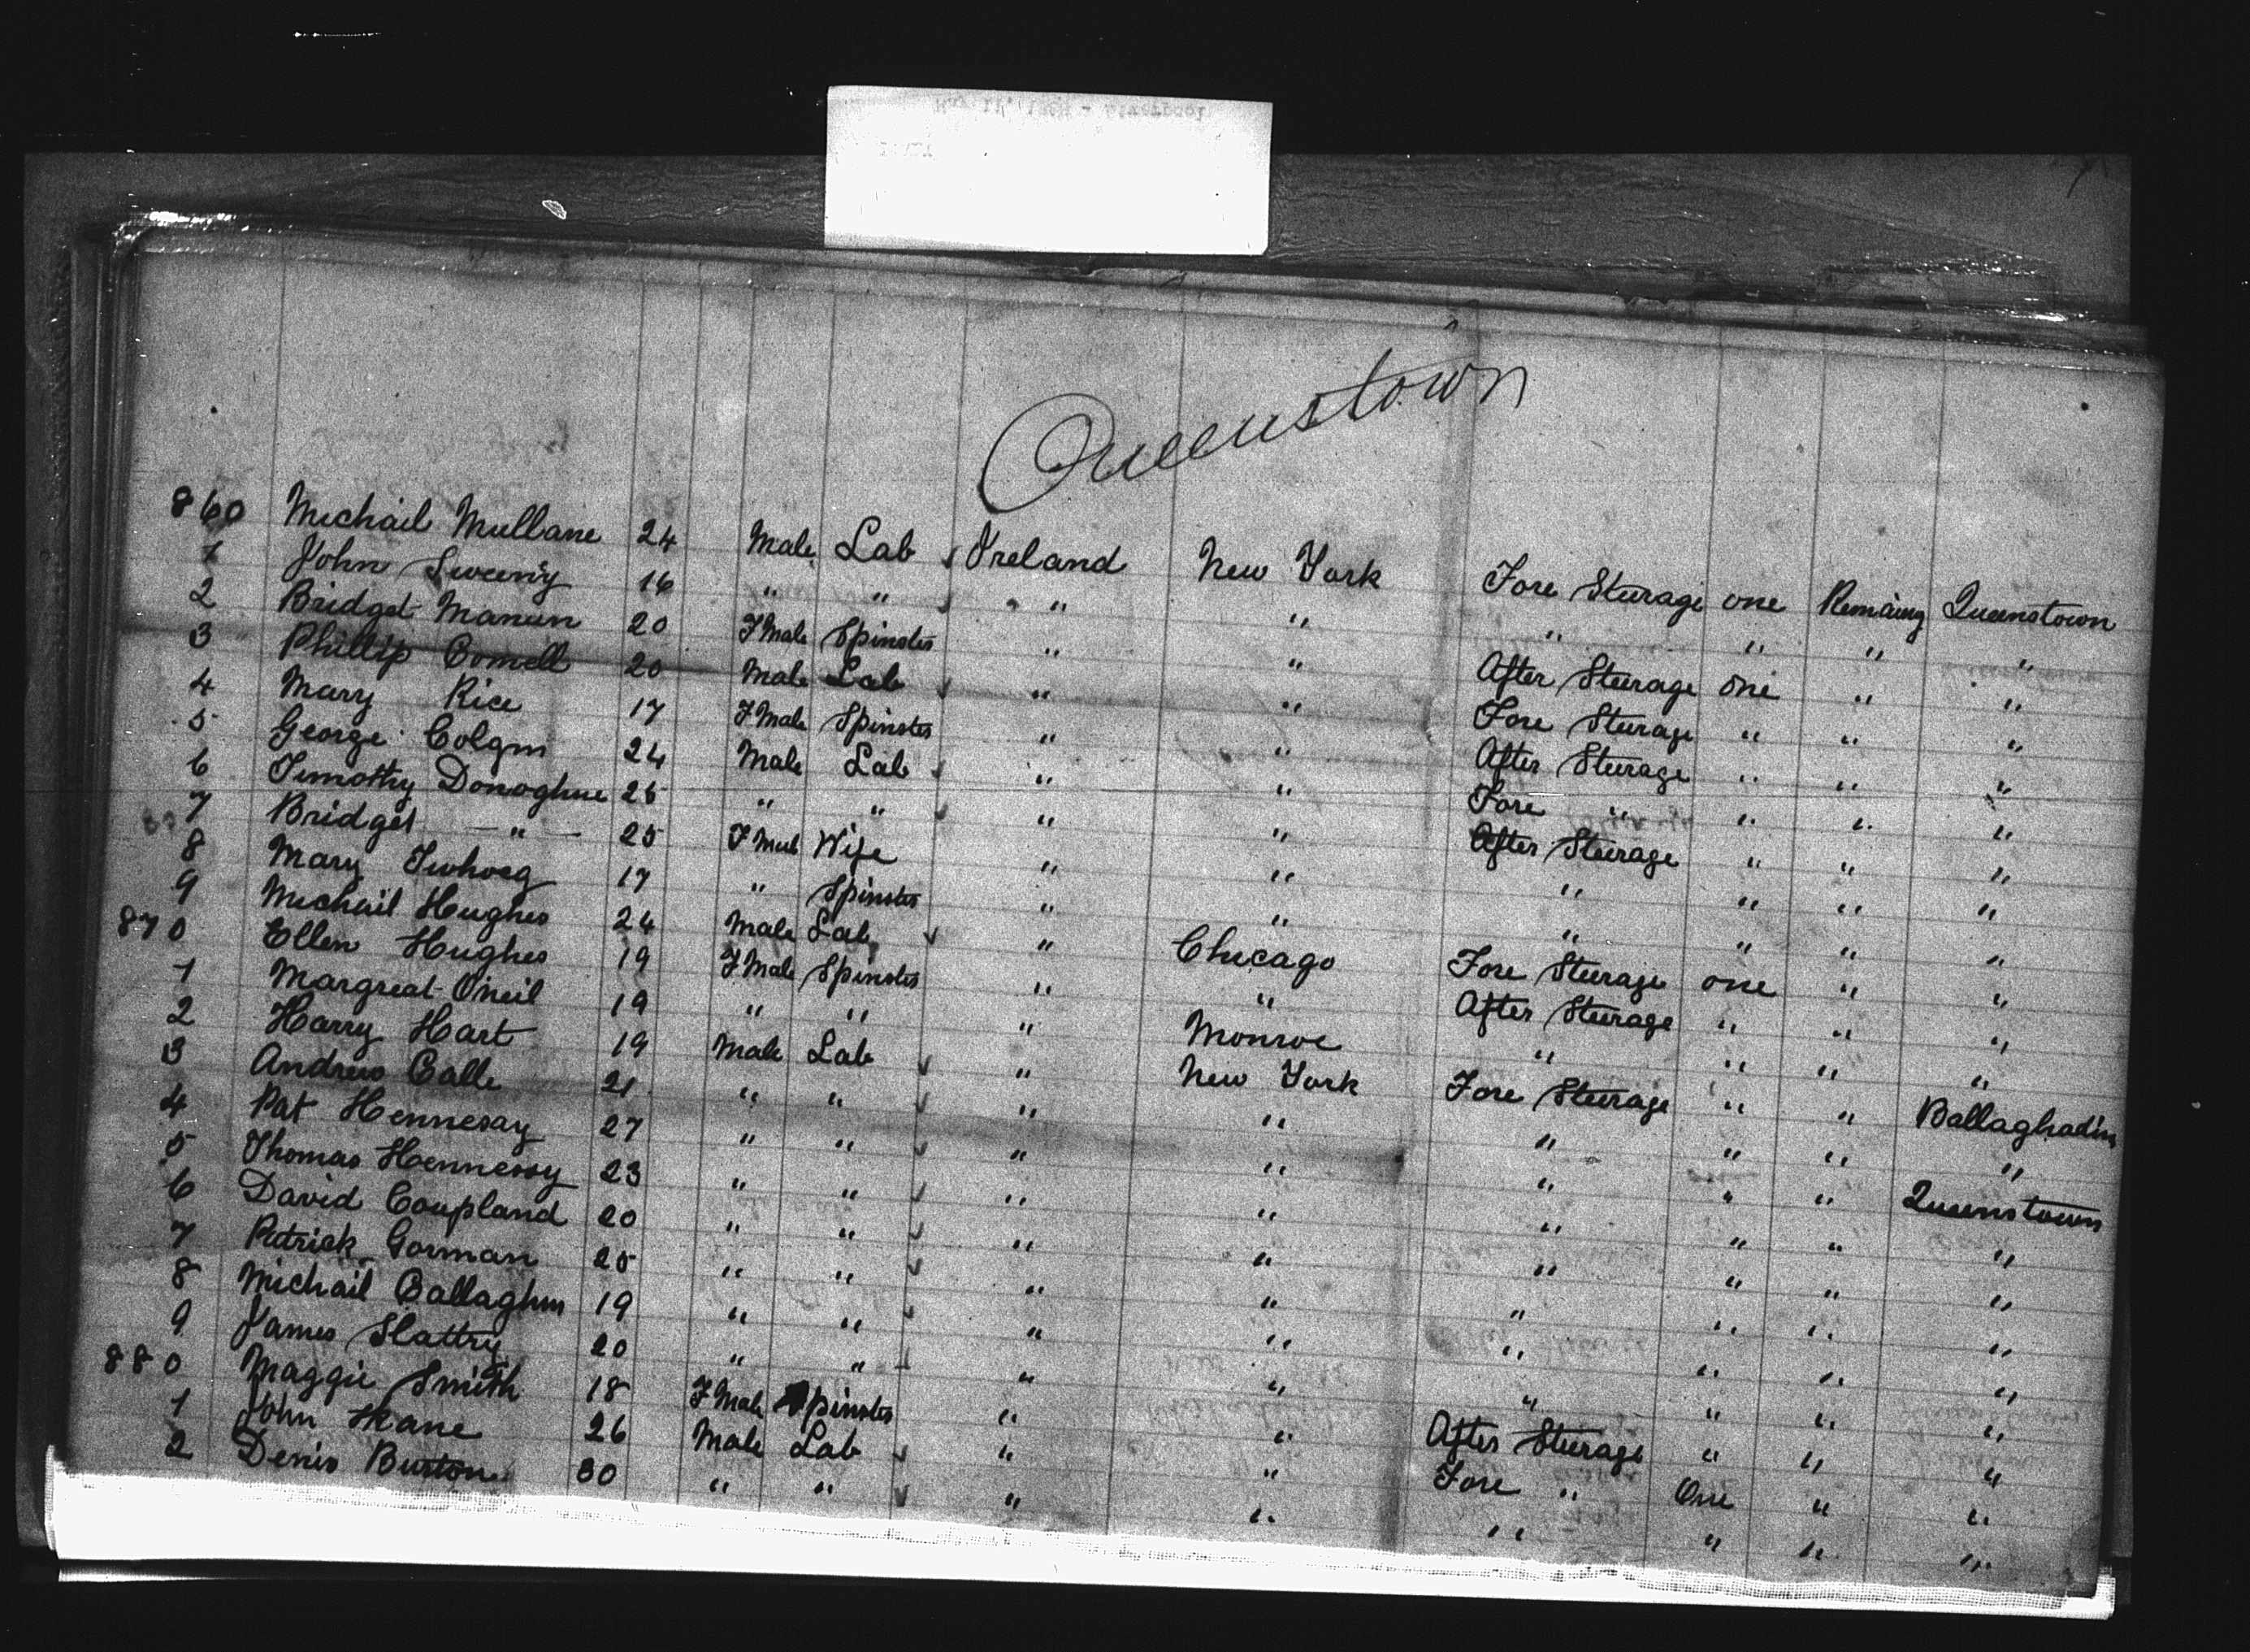 Queenstown
860 Michail Mullane 24 Male Lab Ireland New York Fore Sturage one Remaing Queenstown
1 John Sweeny 16 " " " " " " " "
2 Bridget Manun 20 FMale Spinster " " After Steerage one " "
3 Phillip Comell 20 Male Lab " " Fore Sturage " " "
4 Mary Rice 17 FMale Spinster " " After Sturage " " "
5 George Colgm 24 Male Lab " " Fore " " " "
6 Timothy Donoghue 25 " " " " After Steerage " " "
7 Bridget " 25 FMale Wife " " " " " "
8 Mary 17 " Spinster " " " " " "
9 Michail Hughes 24 Male Lab " Chicago Fore Sturage one " "
870 Ellen Hughes 19 FMale Spinster " " After Steerage " " "
1 Margreat Oneil 19 " " " Monroe " " " "
2 Harry Hart 19 Male Lab " New York Fore Steerage " " Ballaghadin
3 Andrew Calle 21 " " " " " " " "
4 Pat Hennesay 27 " " " " " " " Queenstown
5 Thomas Hennessy 23 " " " " " " " "
6 David Coupland 20 " " " " " " " "
7 Patrick Gorman 25 " " " " " " " "
8 Michail Callaghm 19 " " " " " " " "
9 James Slattry 20 " " " " " " " "
880 Maggie Smith 18 FMale Spinster " " After Sturage " " "
1 John Kane 26 Male Lab " " Fore " One " "
2 Denis Burton 30 " " " " " " " "